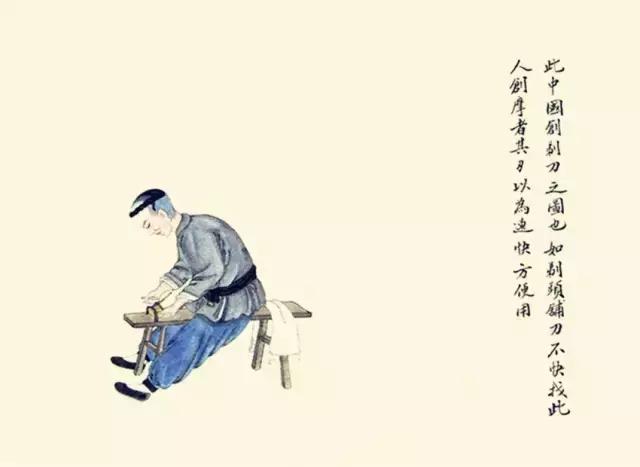 此中國創剃刀之圖也如剃頭舖刀不快找此
人創摩者其刀以為速快方便用